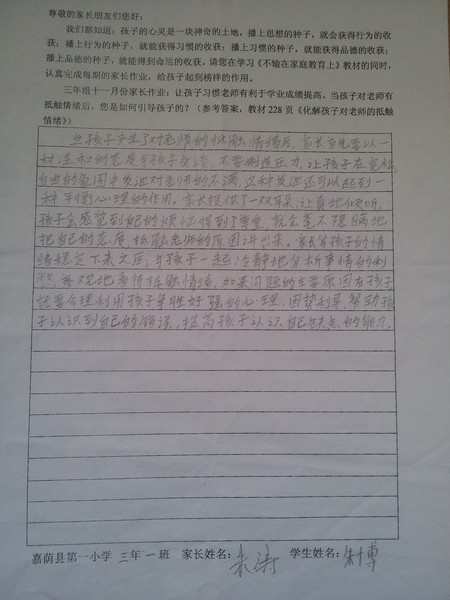 尊敬的家长朋友们您好：
我们都知道：孩子的心灵是一块神奇的土地，播上思想的种子，就会获得行为的收
获；播上行为的种子，就能获得习惯的收获；播上习惯的种子，就能获得品德的收获；
播上品德的种子，就能得到命运的收获。请您在学习《不输在家庭教育上》教材的同时，
认真完成每期的家长作业，给孩子起到榜样的作用。
三年组十一月份家长作业：让孩子习惯老师有利于学业成绩提高，当孩子对老师有
抵触情绪后，您是如何引导孩子的？（参考答案，教材 228 页《化解孩子对老师的抵触
情绪》）
当孩子产生了对老师的抵触情绪后，家长首先要以一
种温和的态度与孩子交谈，不要制造压力，让孩子在宽松
自由的氛围中发泄对老师的不满，这种发泄还可以起到一
种平衡心理的作用。家长提供了一双耳朵，让真地倾听，
孩子会感觉到自己的烦恼得到了尊重，就会毫不隐瞒地
把自己的态度，抵触老师的原因讲出来。家长等孩子的情
绪稳定下来之后，与孩子一起冷静地分析事情的利
客观地看待抵触情绪，如果问题的主要原因在孩子
就要合理利用孩子争胜好强的心理，因势利导，帮助孩
子认识到自己的错误，提高孩子认识自己缺点的能力。
嘉荫县第一小学 三年一班 家长姓名：朱涛 学生姓名：朱博